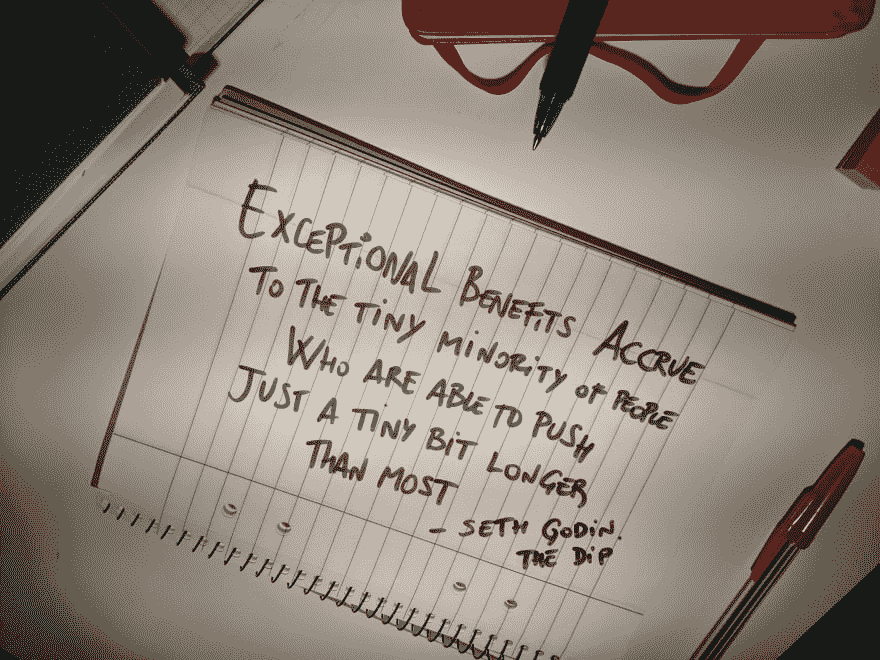 EXCEPTIONAL BENEFITS ACCRUE
TO THE TINY MINORITY OF PEOPLE
WHO ARE ABLE TO PUSH
JUST A TINY BIT LONGER
THAN MOST
- SETH GODIN.
THE DIP